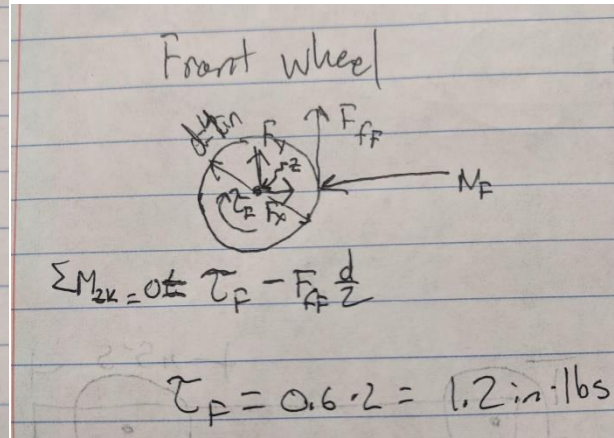 Front wheel
d=4in
F_y
F_fF
z
τ_F
F_x
N_F
ΣM_zk = 0 = τ_F - F_fF d/2
τ_F = 0.6·2 = 1.2 in·lbs